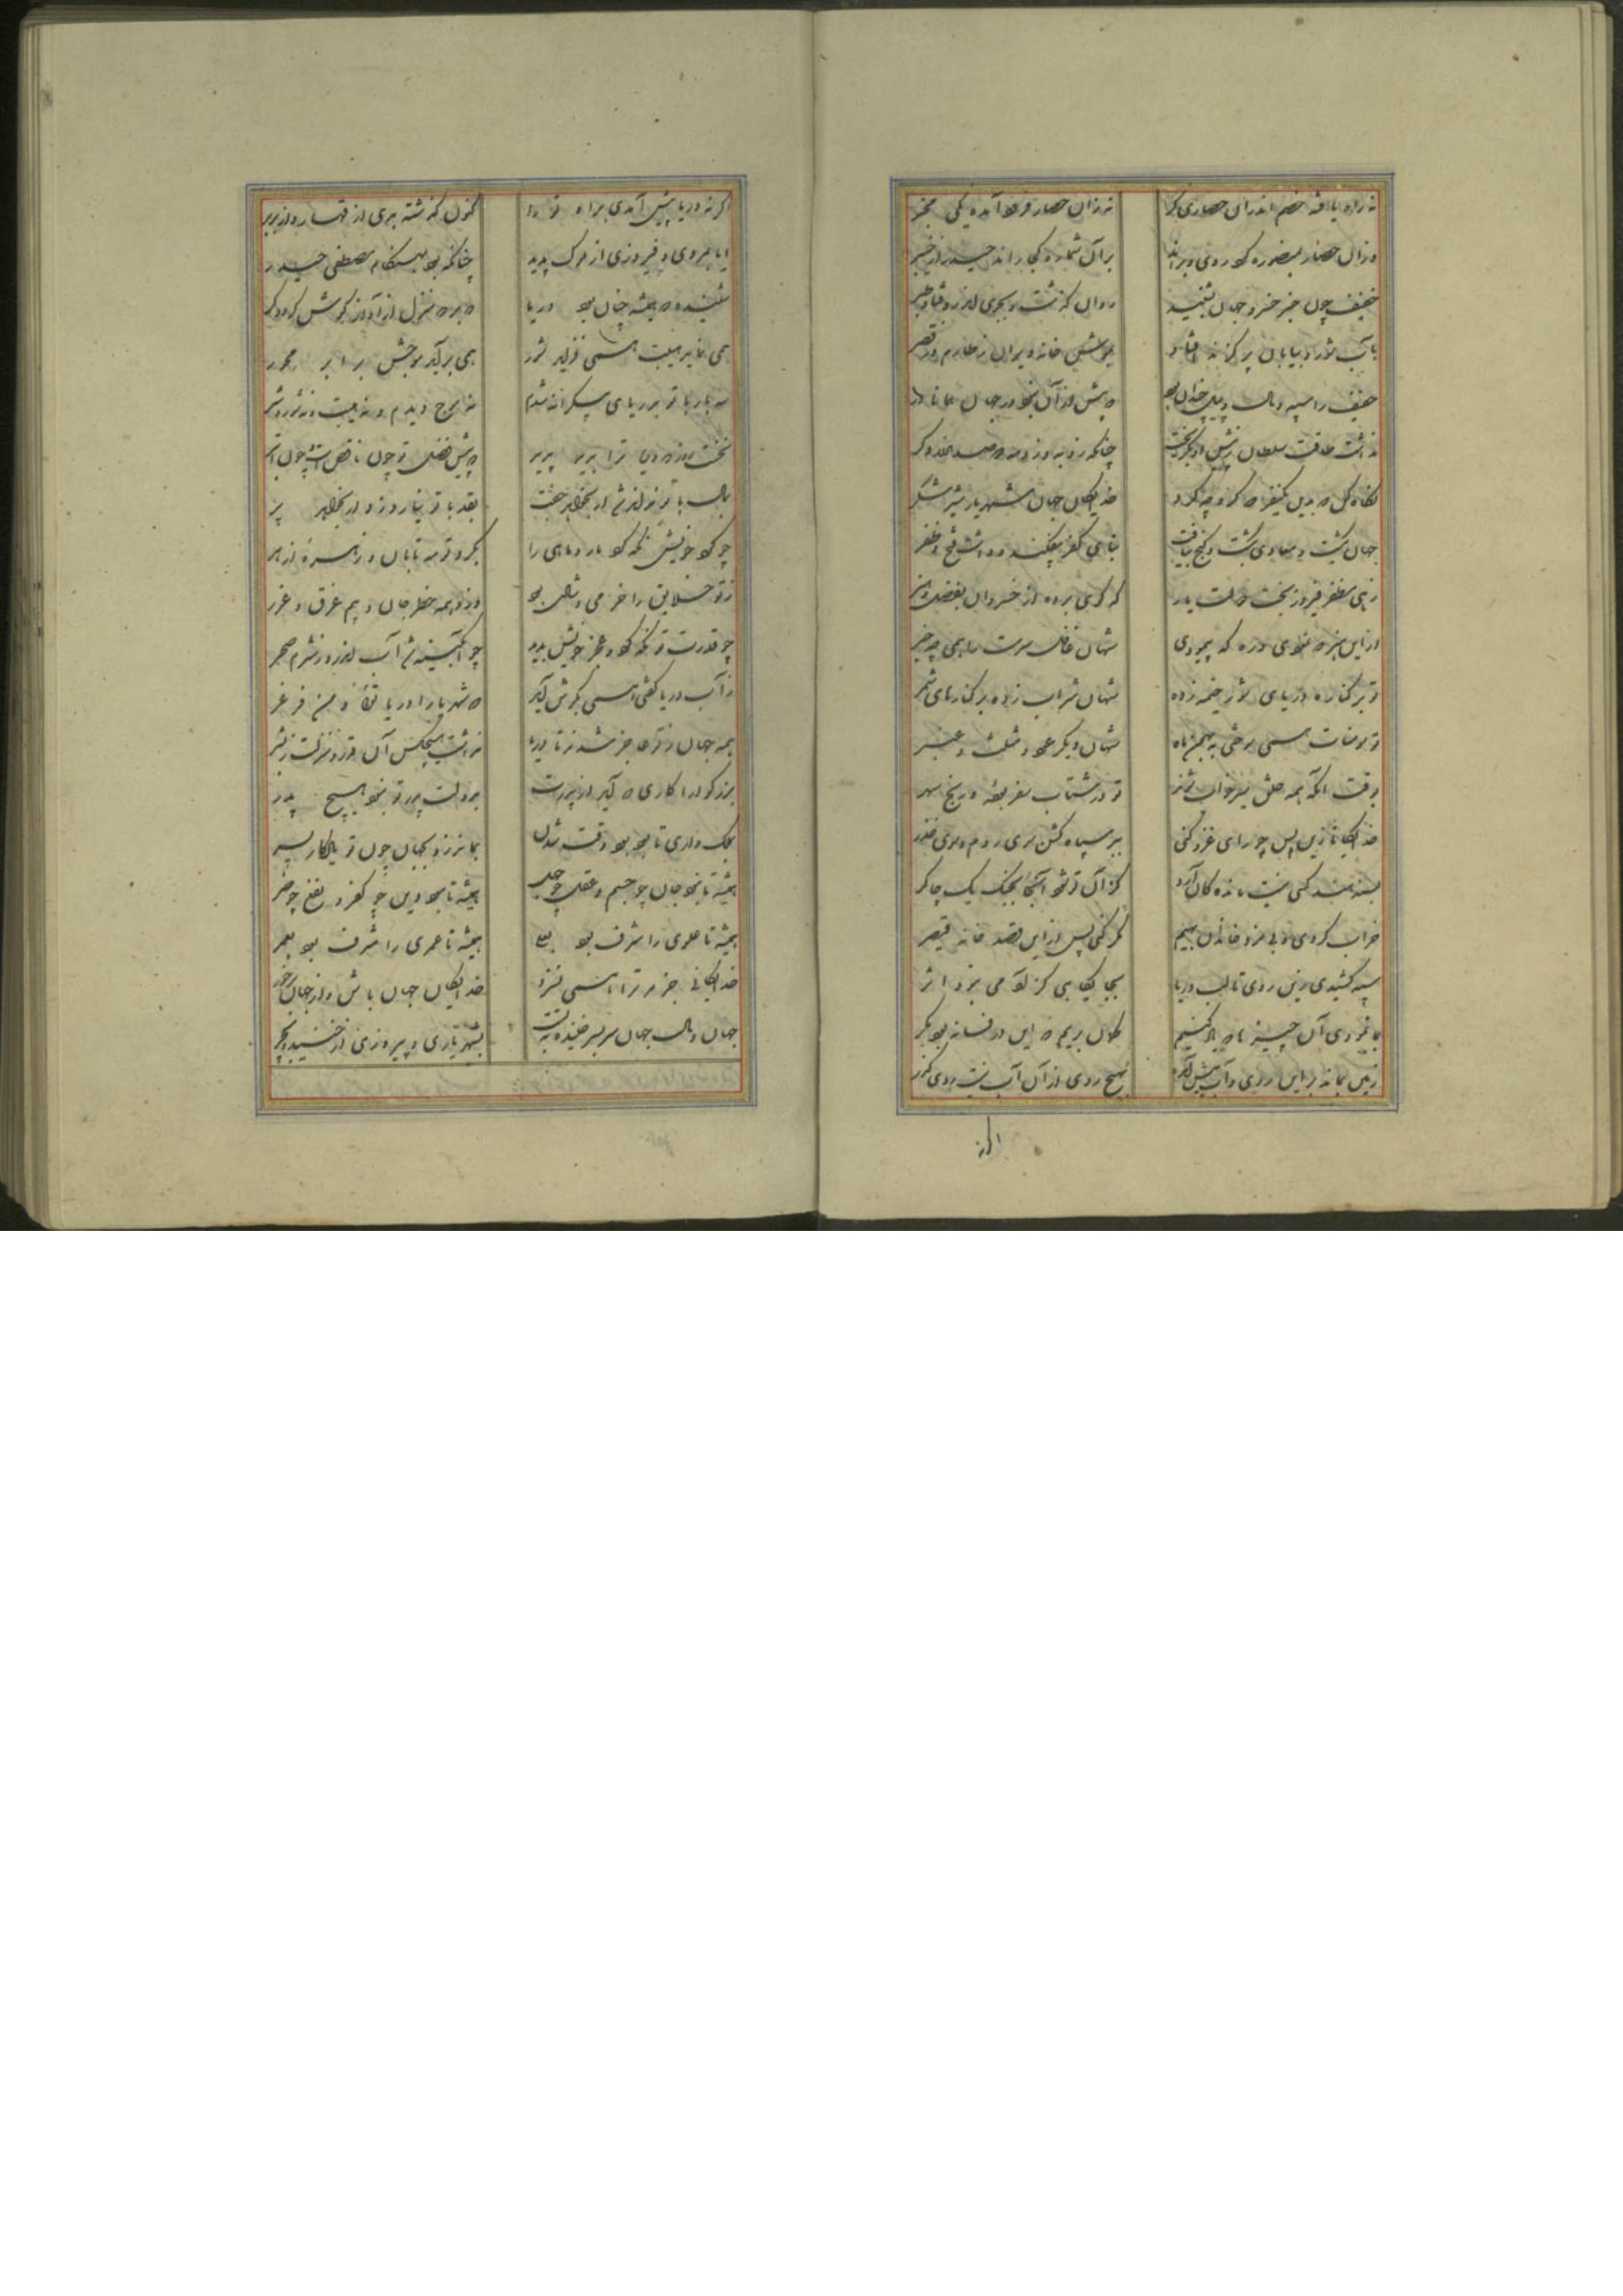 نه زاد یافته خصم اندران حصاری کر نه زان حصار فرود آمده یکی بخبر
وزان حصار بمنصوره کرد روی و براند بر آن شماره کجا راند حیدر از خیبر
خفیف چون خبر خسرو جهان بشنید دوان گذشت و بجوی اندر اوفتاد و بجر
خفیف را سپه و مال و پیل چندان بود که بیش از آن نبود در جهان همانا
نداشت طاقت سلطان ز پیش او بگریخت چنانکه زو
نگاه کن که بدین یکسفر که کرد چه کرد خدایگان جهان شهریار شیر شکر
جهان بگشت و معادی بکشت و گنج بیافت بنای کفر بیفکند و داشت فتح و ظفر
زهی مظفر فیروز بخت دولت یار که گوی برده از خسروان بفضل و هنر
از این هنر که نمودی و ره که پیمودی شهان غافل سرمست را همی چه خبر
تو بر کناره دریای شور خیمه زده شهان شراب زده بر کنارهای شمر
تو سومنات همی سوختی به بهمن ماه شهان دیگر عود و مثلث و عنبر
بوقت آنکه همه خلق سر بخواب شوند تو در شتاب سفر بوده و رنج سهر
خدایگانا زین پس چو رای غزو کنی ببر سپاه گشن سوی روم و سوی خزر
بسند و هند کسی نیست مانده کان ارزد کز آن تو شود آنجا بجنگ یک چاکر
خراب کردی و بی مرد خاندان بهیم مگر کنی پس از این قصد خانه قیصر
سپه کشیدی زین روی تا لب دریا بجایگاهی کز آدمی نبود اثر
بما نمودی آن چیزها که یاد کنیم گمان بریم که این در فسانه بود مگر
زمین بماند بر این روی و آب پیش آمد به هیچ روی از آن آب نیست روی گذر
اگر نه
اگر نه دریا پیش آمدی براه ترا کنون گذشته بدی از قمار و از بربر
ایا بمردی و فیروزی از ملوک پدید چنانکه بود بهنگام مصطفی حیدر
شنیده که همیشه چنان بود دریا که بر دو منزل از آواز گوش گردد کر
همی نماید هیبت همی فزاید شور همی برآید موجش برابر محور
سه بار با تو بدریای بیکرانه شدم نه موج دیدم و نه هیبت و نه شور و نه شر
نخست روز که دریا ترا بدید بدید که پیش فضل تو چون ناقص است و چون ابتر
بمال با تو نتاند شد ار بخواهد جفت بقدر با تو نیارد زد ار بخواهد بر
چو گرد خویش نگه کرد مار و ماهی را بگرد تو مه تابان و زهره ازهر
ز تو خلایق را خرمی و شادی بود وز او همه خطر جان و بیم غرق و غرر
چو قدرت تو نگه کرد و عجز خویش بدید چو آبگینه شد آب اندرو ز شرم حجر
ز آب دریا گفتی همی بگوش آید که شهریارا دریا توئی و من فرغر
همه جهان ز تو عاجز شدند تا دریا نداشت هیچکس آن قدر و منزلت ز بشر
بزرگوارا کاری که آید از پدرت بدولت پدر تو نبود هیچ پدر
بملک داری تا بود بود و وقت شدن بماند زو بجهان چون تو یادگار پسر
همیشه تا نبود جان چو جسم و عقل چو جهل همیشه تا نبود دین چو کفر و نفع چو ضر
همیشه تا علوی را شرف بود بعلی همیشه تا عمری را شرف بود بعمر
خدایگانی جز مر ترا همی نسزد خدایگان جهان باش و از جهان برخور
جهان و مال جهان سربسر خنیده تست بشهریاری و پیروزی از خنیده بچر